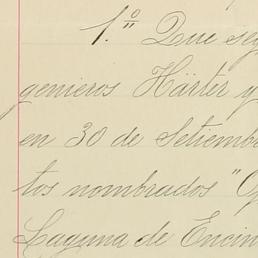 1.º Que seg
genieros Härter y
en 30 de Setiembr
tos nombrados "Op
Laguna de Encin